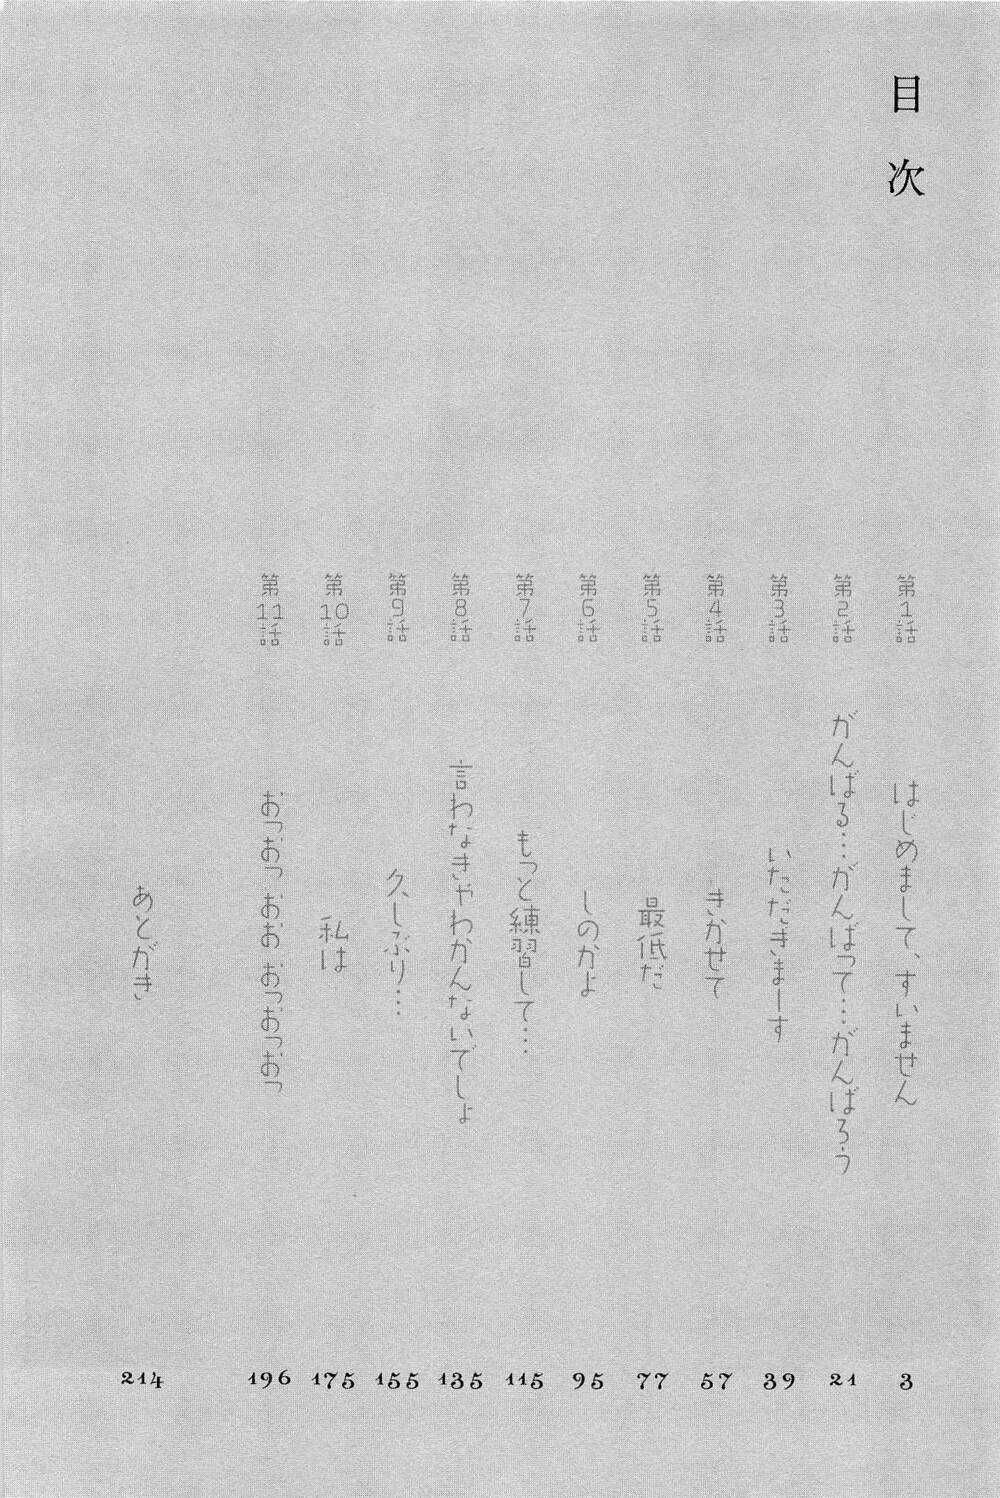 目次
第1話 はじめまして、すいません 3
第2話 がんばる…がんばって…がんばろう 21
第3話 いただきまーす 39
第4話 きかせて 57
第5話 最低だ 77
第6話 しのかよ 95
第7話 もっと練習して… 115
第8話 言わなきゃわかんないでしょ 135
第9話 久しぶり… 155
第10話 私は 175
第11話 おっおっ おお おっおっおっ 196
あとがき 214